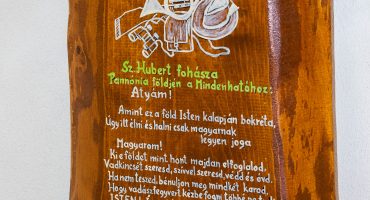 Sz. Hubert fohásza
Pannónia földjén a Mindenhatóhoz:
Atyám!
Amint ez a föld Isten kalapján bokréta,
Úgy itt élni és halni csak magyarnak
legyen joga
Magyarom!
Ki e földet mint hont majdan elfoglalod,
Vadkincsét szeresd, szívvel szeresd, védd és óvd.
Ha nem teszed, bénuljon meg mindkét karod
Hogy vadászfegyvert kézbe fogni többé ne